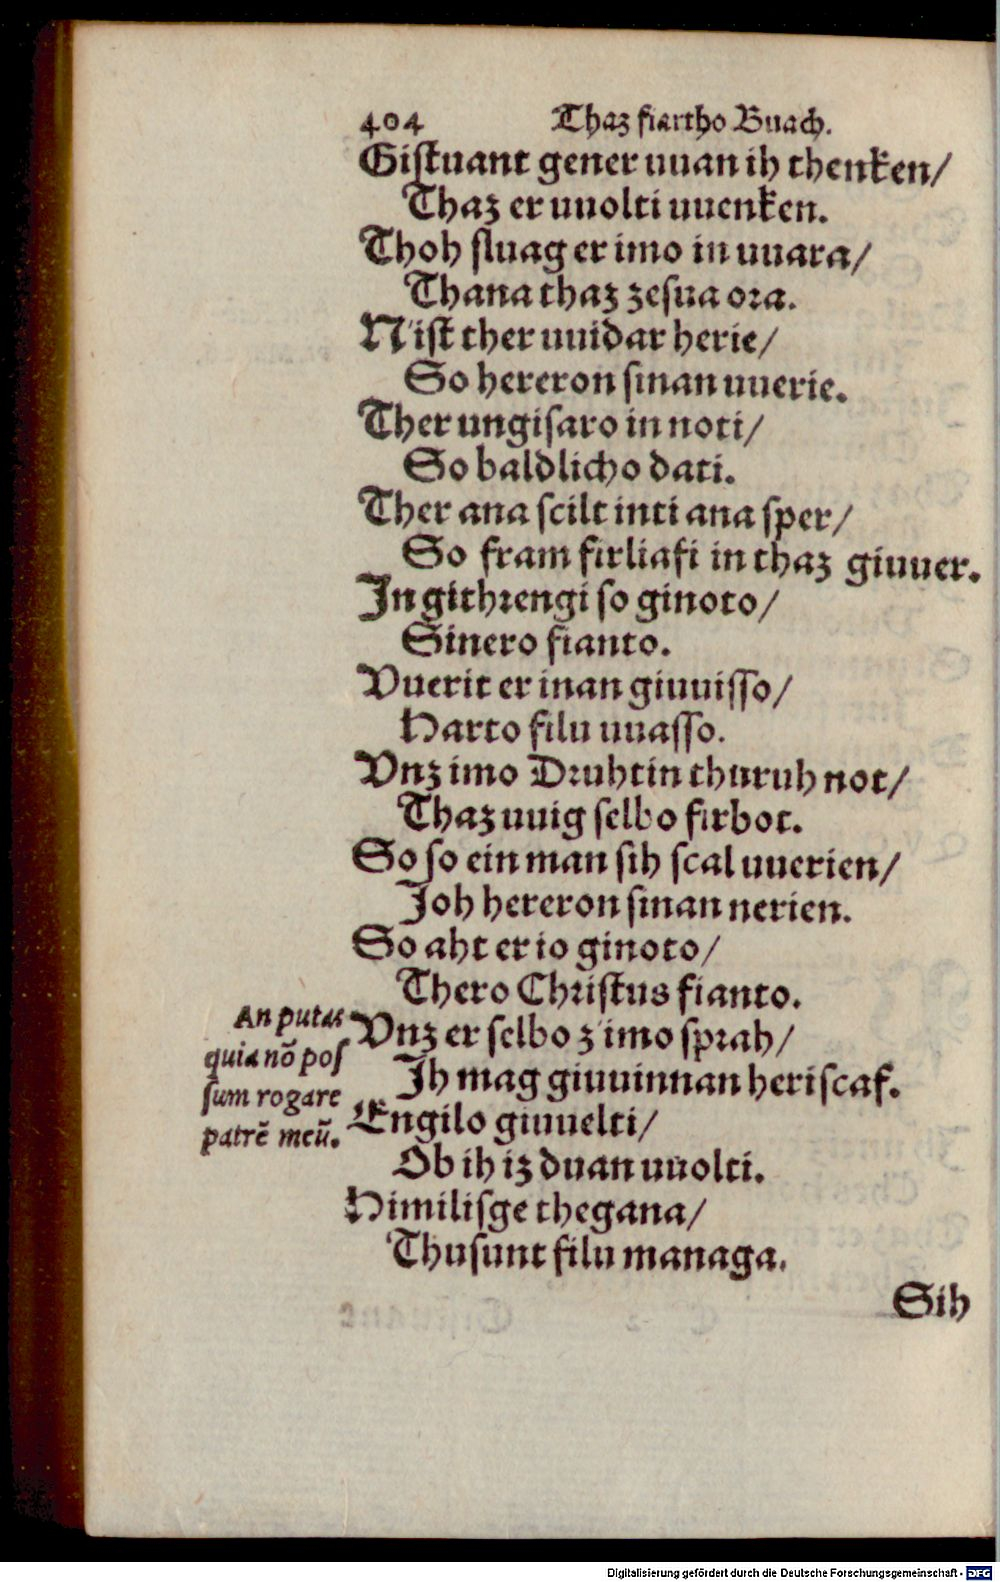 404 Thaz fiartho Buach.
Gistuant gener uuan ih thenken/
Thaz er uuolti uuenken.
Thoh sluag er imo in uuara/
Thana thaz zesua ora.
N'ist ther uuidar herie/
So hereron sinan uuerie.
Ther ungisaro in noti/
So baldlicho dati.
Ther ana scilt inti ana sper/
So fram firliafi in thaz giuuer.
In githrengi so ginoto/
Sinero fianto.
Vuerit er inan giuuisso/
Harto filu uuasso.
Vnz imo Druhtin thuruh not/
Thaz uuig selbo firbot.
So so ein man sih scal uuerien/
Joh hereron sinan nerien.
So aht er io ginoto/
Thero Christus fianto.
An putas
quia nõ pos
sum rogare
patrẽ meũ.
Vnz er selbo z'imo sprah/
Ih mag giuuinnan heriscaf.
Engilo giuuelti/
Ob ih iz duan uuolti.
Himilisge thegana/
Thusunt filu managa.
Sih
Digitalisierung gefördert durch die Deutsche Forschungsgemeinschaft - DFG